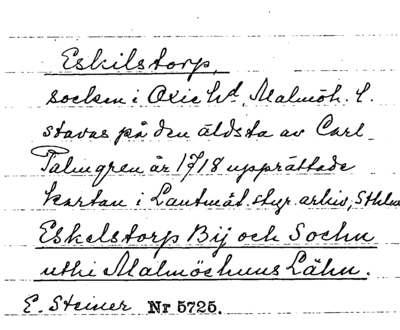 Eskilstorp,
socken i Oxie hd, Malmöh. l.
stavas på den äldsta av Carl
Palmgren år 1718 upprättade
kartan i Lantmät. styr. arkiv, Sthlm
Eskelstorp Bij och Sochn
uthi Malmöehuus Lähn.
E. Steiner Nr 5725.